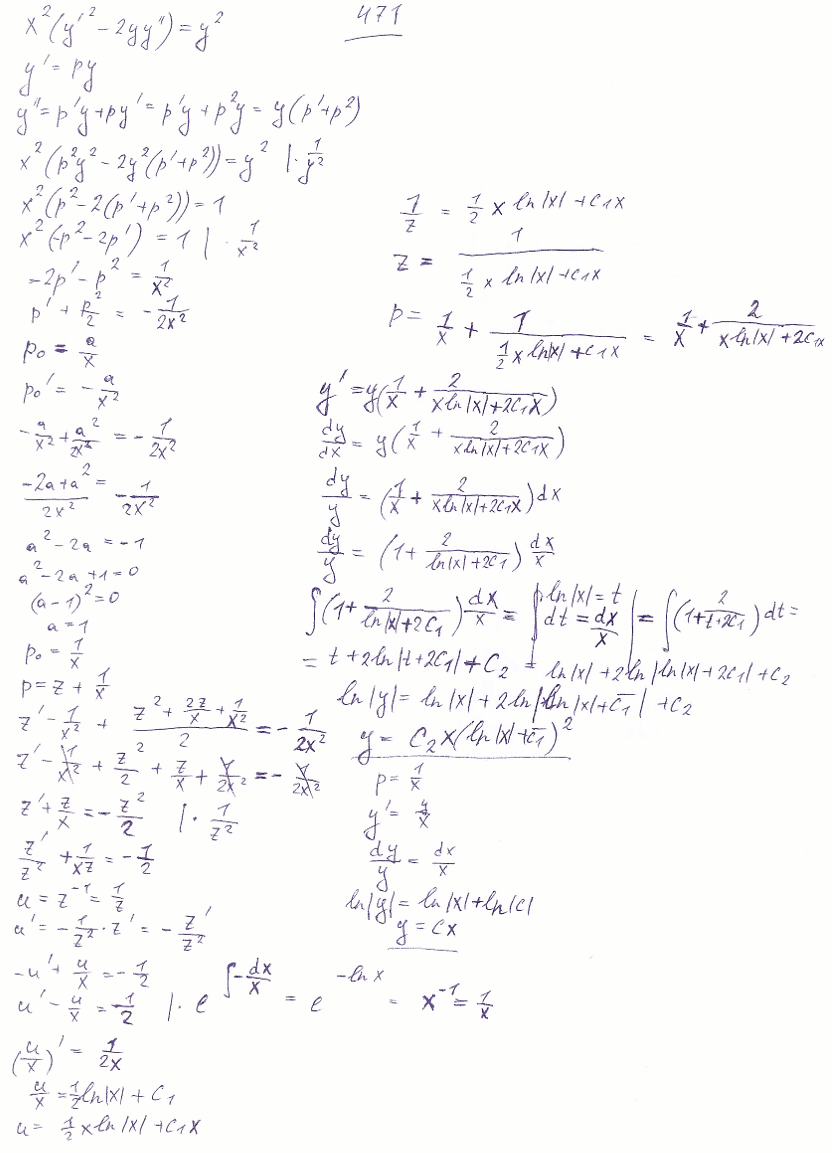 471
x²(y'² - 2yy'') = y²
y' = py
y'' = p'y + py' = p'y + p²y = y(p' + p²)
x²(p²y² - 2y²(p' + p²)) = y² | · 1/y²
x²(p² - 2(p' + p²)) = 1
x²(-p² - 2p') = 1 | · 1/x²
-2p' - p² = 1/x²
p' + p²/2 = -1/2x²
p₀ = a/x
p₀' = -a/x²
-a/x² + a²/2x² = -1/2x²
(-2a + a²)/2x² = -1/2x²
a² - 2a = -1
a² - 2a + 1 = 0
(a - 1)² = 0
a = 1
p₀ = 1/x
p = z + 1/x
z' - 1/x² + (z² + 2z/x + 1/x²)/2 = -1/2x²
z' - 1/x² + z²/2 + z/x + 1/2x² = -1/2x²
z' + z/x = -z²/2 | · 1/z²
z'/z² + 1/xz = -1/2
u = z⁻¹ = 1/z
u' = -1/z² · z' = -z'/z²
-u' + u/x = -1/2
u' - u/x = -1/2 | · e^(∫-dx/x) = e^(-ln x) = x⁻¹ = 1/x
(u/x)' = 1/2x
u/x = 1/2 ln|x| + C₁
u = 1/2 x ln|x| + C₁x
1/z = 1/2 x ln|x| + C₁x
z = 1/(1/2 x ln|x| + C₁x)
p = 1/x + 1/(1/2 x ln|x| + C₁x) = 1/x + 2/(x ln|x| + 2C₁x)
y' = y(1/x + 2/(x ln|x| + 2C₁x))
dy/dx = y(1/x + 2/(x ln|x| + 2C₁x))
dy/y = (1/x + 2/(x ln|x| + 2C₁x))dx
dy/y = (1 + 2/(ln|x| + 2C₁)) dx/x
∫(1 + 2/(ln|x| + 2C₁)) dx/x = | ln|x| = t dt = dx/x | = ∫(1 + 2/(t + 2C₁)) dt =
= t + 2ln|t + 2C₁| + C₂ = ln|x| + 2ln|ln|x| + 2C₁| + C₂
ln|y| = ln|x| + 2ln|ln|x| + C̅₁| + C₂
y = C₂x(ln|x| + C̅₁)²
p = 1/x
y' = y/x
dy/y = dx/x
ln|y| = ln|x| + ln|C|
y = Cx